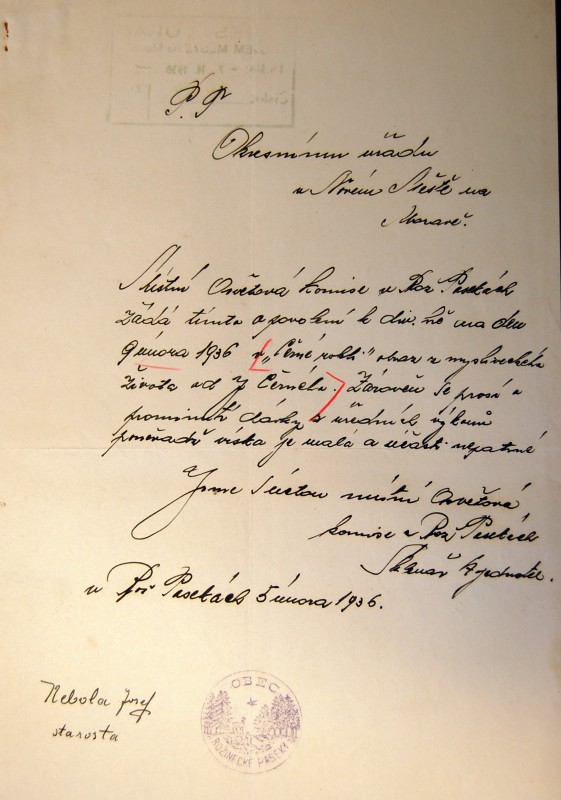 P. P
Okresnímu úřadu
v Novém Městě na
Moravě.
Místní Osvětová komise v Rož. Pasekách
žádá tímto o povolení k div. na den
9 února 1936 v „Černé rokli" obraz z mysliveckého
života od J Černého. Zároveň se prosí o
prominutí dávky z úředních výkonů
poněvadž víska je malá a účast nepatrná
Jsme v úctou místní Osvětová
komise v Rož Pasekách
jednatel.
v Rož Pasekách 5 února 1936.
Nebola Josef
starosta
OBEC
ROŽINECKÉ PASEKY